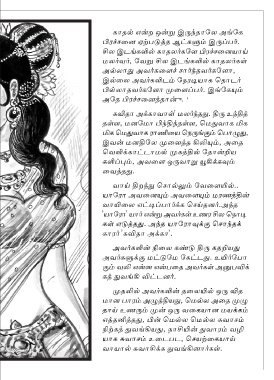 காதல் என்ற ஒன்று இருந்தாலே அங்கே
பிரச்சனை ஏற்படுத்த ஆட்களும் இருப்பர்.
சில இடங்களில் காதலர்களே பிரச்சனையாய்
மலர்வர், வேறு சில இடங்களில் காதலர்கள்
அல்லாது அவர்களைச் சார்ந்தவர்களோ,
இல்லை அவர்களிடம் நேரடியாக தொடர்
பில்லாதவர்களோ முளைப்பர். இங்கேயும்
அதே பிரச்சனைதான்”.
கவிதா அக்காவாள் மலர்ந்தது. திரு உந்தித்
தள்ள, மனமோ பிந்தித்தள்ள, மெதுவாக மிக
மிக மெதுவாக ராணியை நெருங்கும் பொழுது,
இவன் மனதிலே முளைத்த கிலியும், அதை
வெளிக்காட்டாமல் முகத்தில் தோன்றிய
களிப்பும், அவளை ஒருவாறு யூகிக்கவும்
வைத்தது.
வாய் திறந்து சொல்லும் வேளையில்..
யாரோ அவனையும் அவளையும் மரணத்தின்
வாயிலை எட்டிப்பார்க்க செய்தனர்.அந்த
‘யாரோ’ யார் என்று அவர்கள் உணர சில நொடி
கள் எடுத்தது. அந்த யாரோவுக்கு சொந்தக்
காரர்‘ கவிதா அக்கா’.
அவர்களின் நிலை கண்டு திரு கதறியது
அவர்களுக்கு மட்டுமே கேட்டது. உயிர்போ
கும் வலி என்ன என்பதை அவர்கள் அனுபவிக்
கத் துவங்கி விட்டனர்.
முதலில் அவர்களின் தலையில் ஒரு வித
மான பாரம் அழுத்தியது, மெல்ல அதை முழு
தாய் உணரும் முன் ஒரு வகையான மயக்கம்
எத்தனித்தது, பின் மெல்ல மெல்ல சுவாசம்
நிற்கத் துவங்கியது, நாசியின் துவாரம் வழி
யாக சுவாசம் உடைபட, செயற்கையாய்
வாயால் சுவாசிக்க துவங்கினார்கள்.